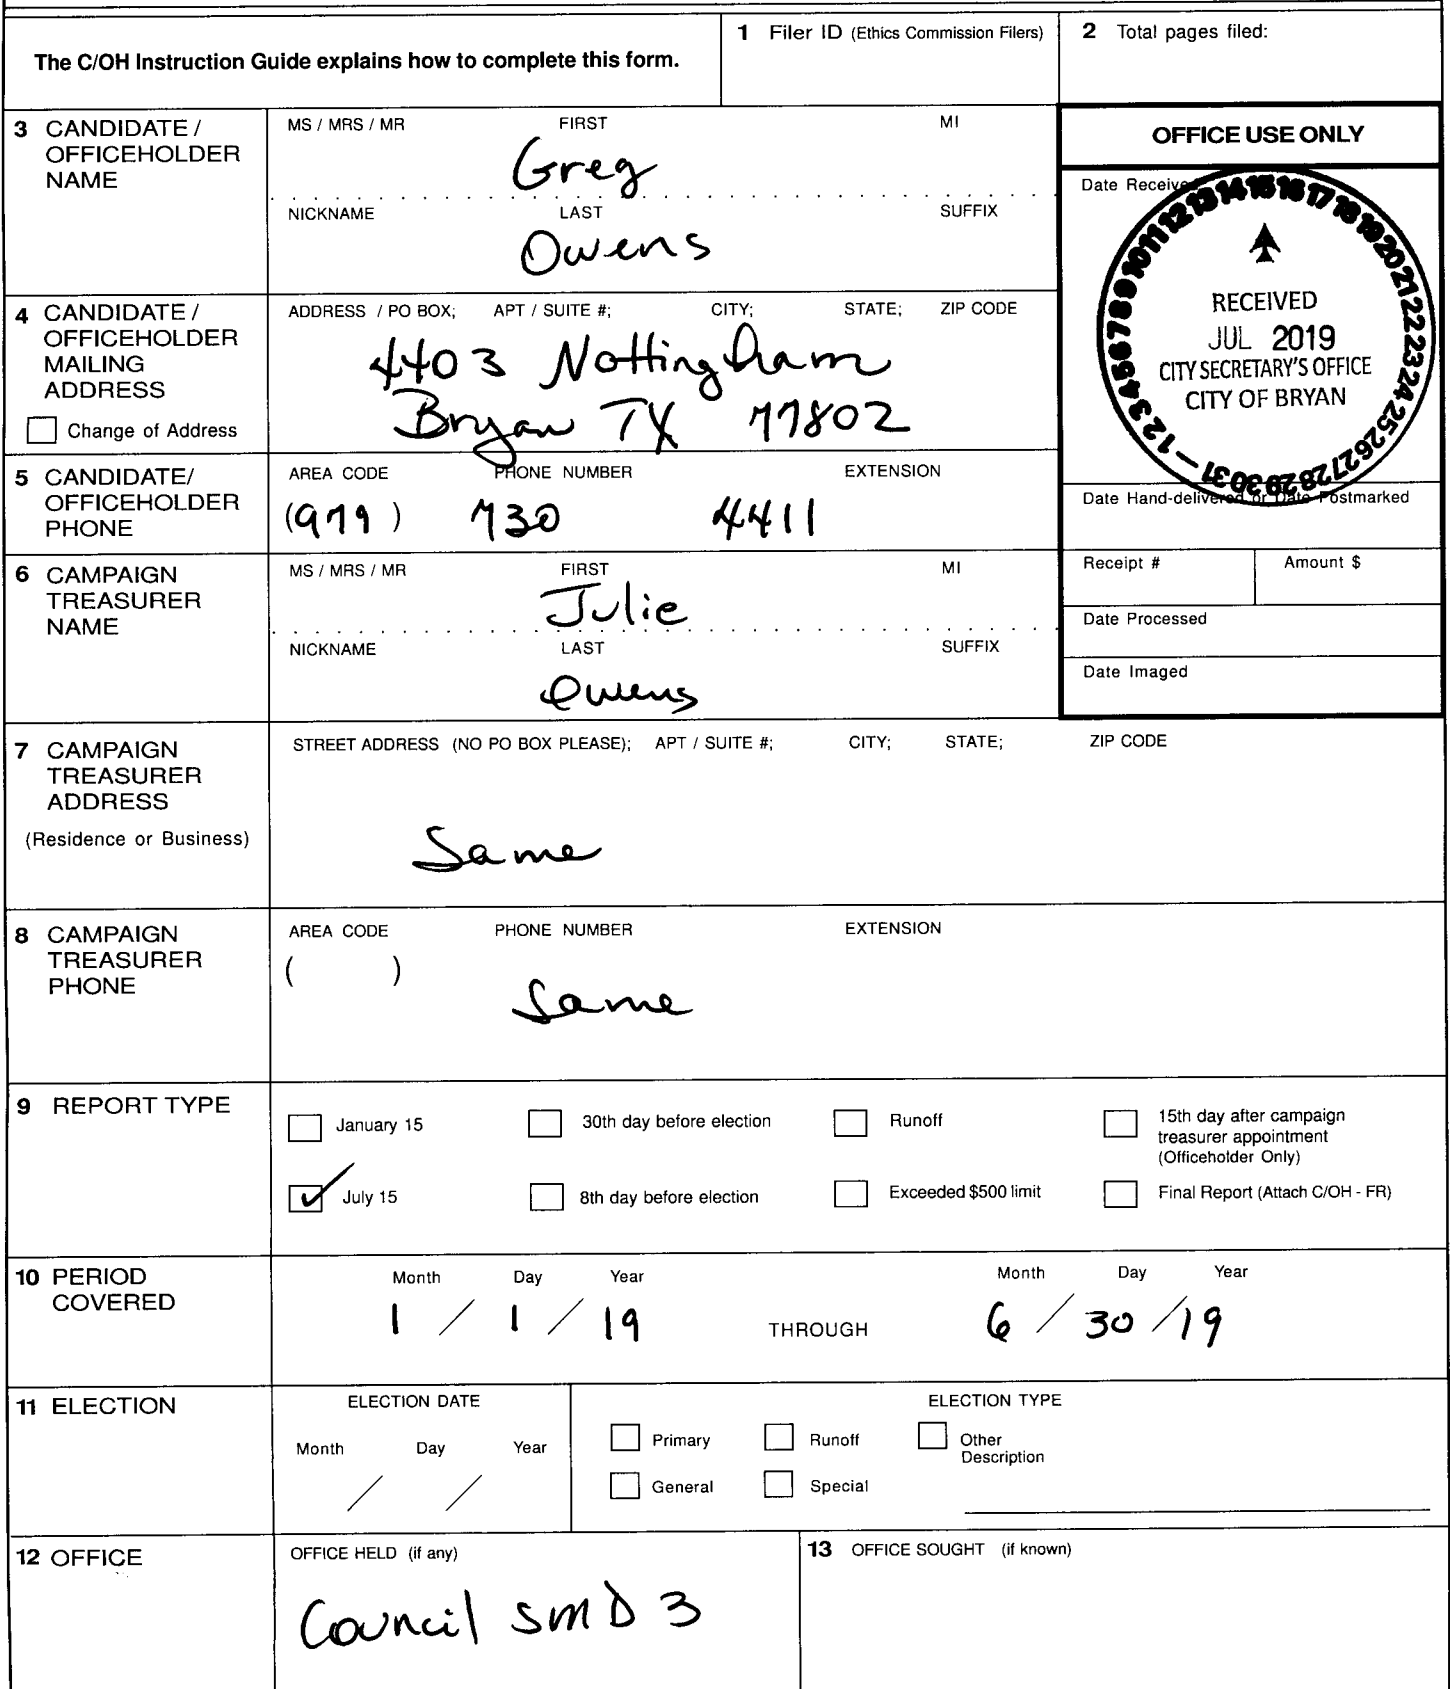 The C/OH Instruction Guide explains how to complete this form.
1 Filer ID (Ethics Commission Filers)
2 Total pages filed:
3 CANDIDATE / OFFICEHOLDER NAME
MS / MRS / MR FIRST MI
Greg
NICKNAME LAST SUFFIX
Owens
OFFICE USE ONLY
Date Received
1 2 3 4 5 6 7 8 9 10 11 12 13 14 15 16 17 18 19 20 21 22 23 24 25 26 27 28 29 30 31
RECEIVED
JUL 2019
CITY SECRETARY'S OFFICE
CITY OF BRYAN
Date Hand-delivered or Date Postmarked
Receipt # Amount $
Date Processed
Date Imaged
4 CANDIDATE / OFFICEHOLDER MAILING ADDRESS
Change of Address
ADDRESS / PO BOX; APT / SUITE #; CITY; STATE; ZIP CODE
4403 Nottingham
Bryan TX 77802
5 CANDIDATE/ OFFICEHOLDER PHONE
AREA CODE PHONE NUMBER EXTENSION
(979) 730 4411
6 CAMPAIGN TREASURER NAME
MS / MRS / MR FIRST MI
Julie
NICKNAME LAST SUFFIX
Owens
7 CAMPAIGN TREASURER ADDRESS
(Residence or Business)
STREET ADDRESS (NO PO BOX PLEASE); APT / SUITE #; CITY; STATE; ZIP CODE
Same
8 CAMPAIGN TREASURER PHONE
AREA CODE PHONE NUMBER EXTENSION
( )
Same
9 REPORT TYPE
January 15 30th day before election Runoff 15th day after campaign treasurer appointment (Officeholder Only)
July 15 8th day before election Exceeded $500 limit Final Report (Attach C/OH - FR)
10 PERIOD COVERED
Month Day Year Month Day Year
1 / 1 / 19 THROUGH 6 / 30 / 19
11 ELECTION
ELECTION DATE
Month Day Year
/ /
ELECTION TYPE
Primary Runoff Other Description
General Special
12 OFFICE
OFFICE HELD (if any)
Council SMD 3
13 OFFICE SOUGHT (if known)